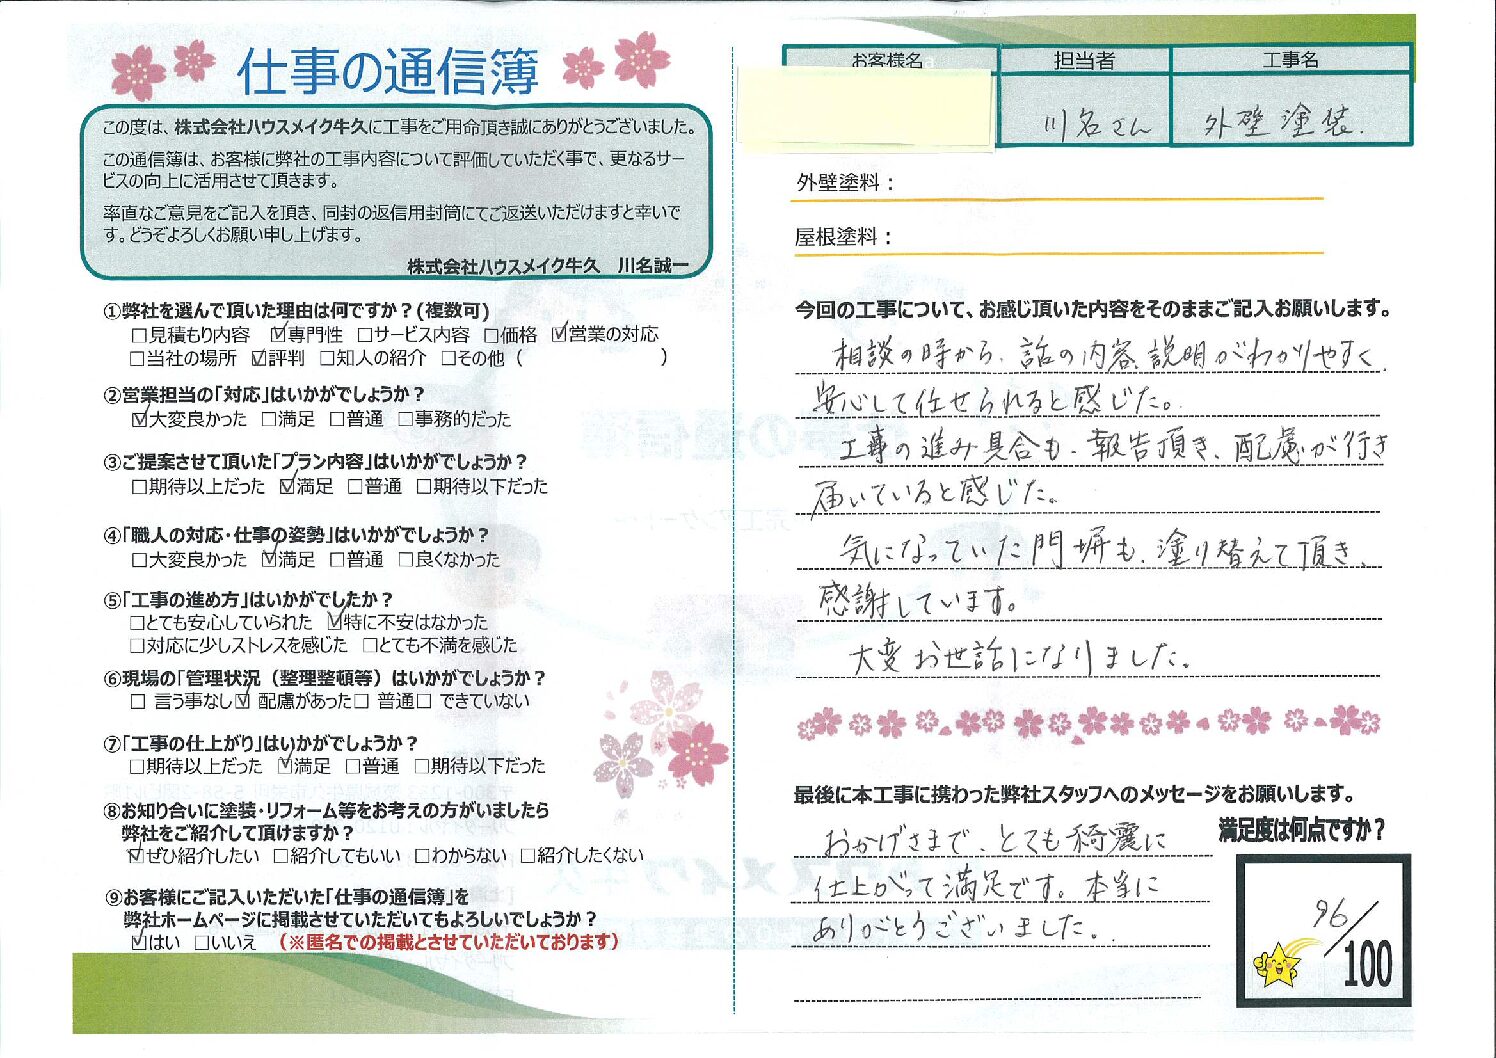 仕事の通信簿
この度は、株式会社ハウスメイク牛久に工事をご用命頂き誠にありがとうございました。
この通信簿は、お客様に弊社の工事内容について評価していただく事で、更なるサー
ビスの向上に活用させて頂きます。
率直なご意見をご記入を頂き、同封の返信用封筒にてご返送いただけますと幸いで
す。どうぞよろしくお願い申し上げます。
株式会社ハウスメイク牛久 川名誠一
①弊社を選んで頂いた理由は何ですか?(複数可)
□見積もり内容 ☑専門性 □サービス内容 □価格 ☑営業の対応
□当社の場所 ☑評判 □知人の紹介 □その他( )
②営業担当の「対応」はいかがでしょうか?
☑大変良かった □満足 □普通 □事務的だった
③ご提案させて頂いた「プラン内容」はいかがでしょうか?
□期待以上だった ☑満足 □普通 □期待以下だった
④「職人の対応・仕事の姿勢」はいかがでしょうか?
□大変良かった ☑満足 □普通 □良くなかった
⑤「工事の進め方」はいかがでしたか?
□とても安心していられた ☑特に不安はなかった
□対応に少しストレスを感じた □とても不満を感じた
⑥現場の「管理状況(整理整頓等)はいかがでしょうか?
□ 言う事なし☑ 配慮があった□ 普通□ できていない
⑦「工事の仕上がり」はいかがでしょうか?
□期待以上だった ☑満足 □普通 □期待以下だった
⑧お知り合いに塗装・リフォーム等をお考えの方がいましたら
弊社をご紹介して頂けますか?
☑ぜひ紹介したい □紹介してもいい □わからない □紹介したくない
⑨お客様にご記入いただいた「仕事の通信簿」を
弊社ホームページに掲載させていただいてもよろしいでしょうか?
☑はい □いいえ (※匿名での掲載とさせていただいております)
お客様名 担当者 工事名
川名さん 外壁塗装.
外壁塗料:
屋根塗料:
今回の工事について、お感じ頂いた内容をそのままご記入お願いします。
相談の時から、話の内容、説明がわかりやすく
安心して任せられると感じた。
工事の進み具合も、報告頂き、配慮が行き
届いていると感じた。
気になっていた門塀も、塗り替えて頂き、
感謝しています。
大変お世話になりました。
最後に本工事に携わった弊社スタッフへのメッセージをお願いします。
満足度は何点ですか?
おかげさまで、とても綺麗に
仕上がって満足です。本当に
ありがとうございました。
96/100